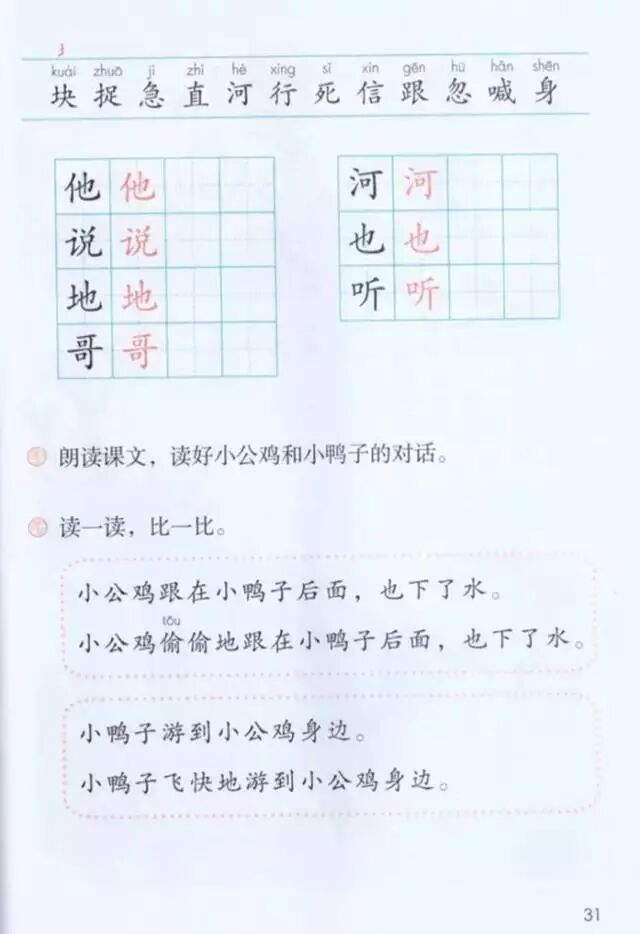 3
kuài zhuō jí zhí hé xíng sǐ xìn gēn hū hǎn shēn
块 捉 急 直 河 行 死 信 跟 忽 喊 身
他 他 河 河
说 说 也 也
地 地 听 听
哥 哥
朗读课文，读好小公鸡和小鸭子的对话。
读一读，比一比。
小公鸡跟在小鸭子后面，也下了水。
tōu
小公鸡偷偷地跟在小鸭子后面，也下了水。
小鸭子游到小公鸡身边。
小鸭子飞快地游到小公鸡身边。
31